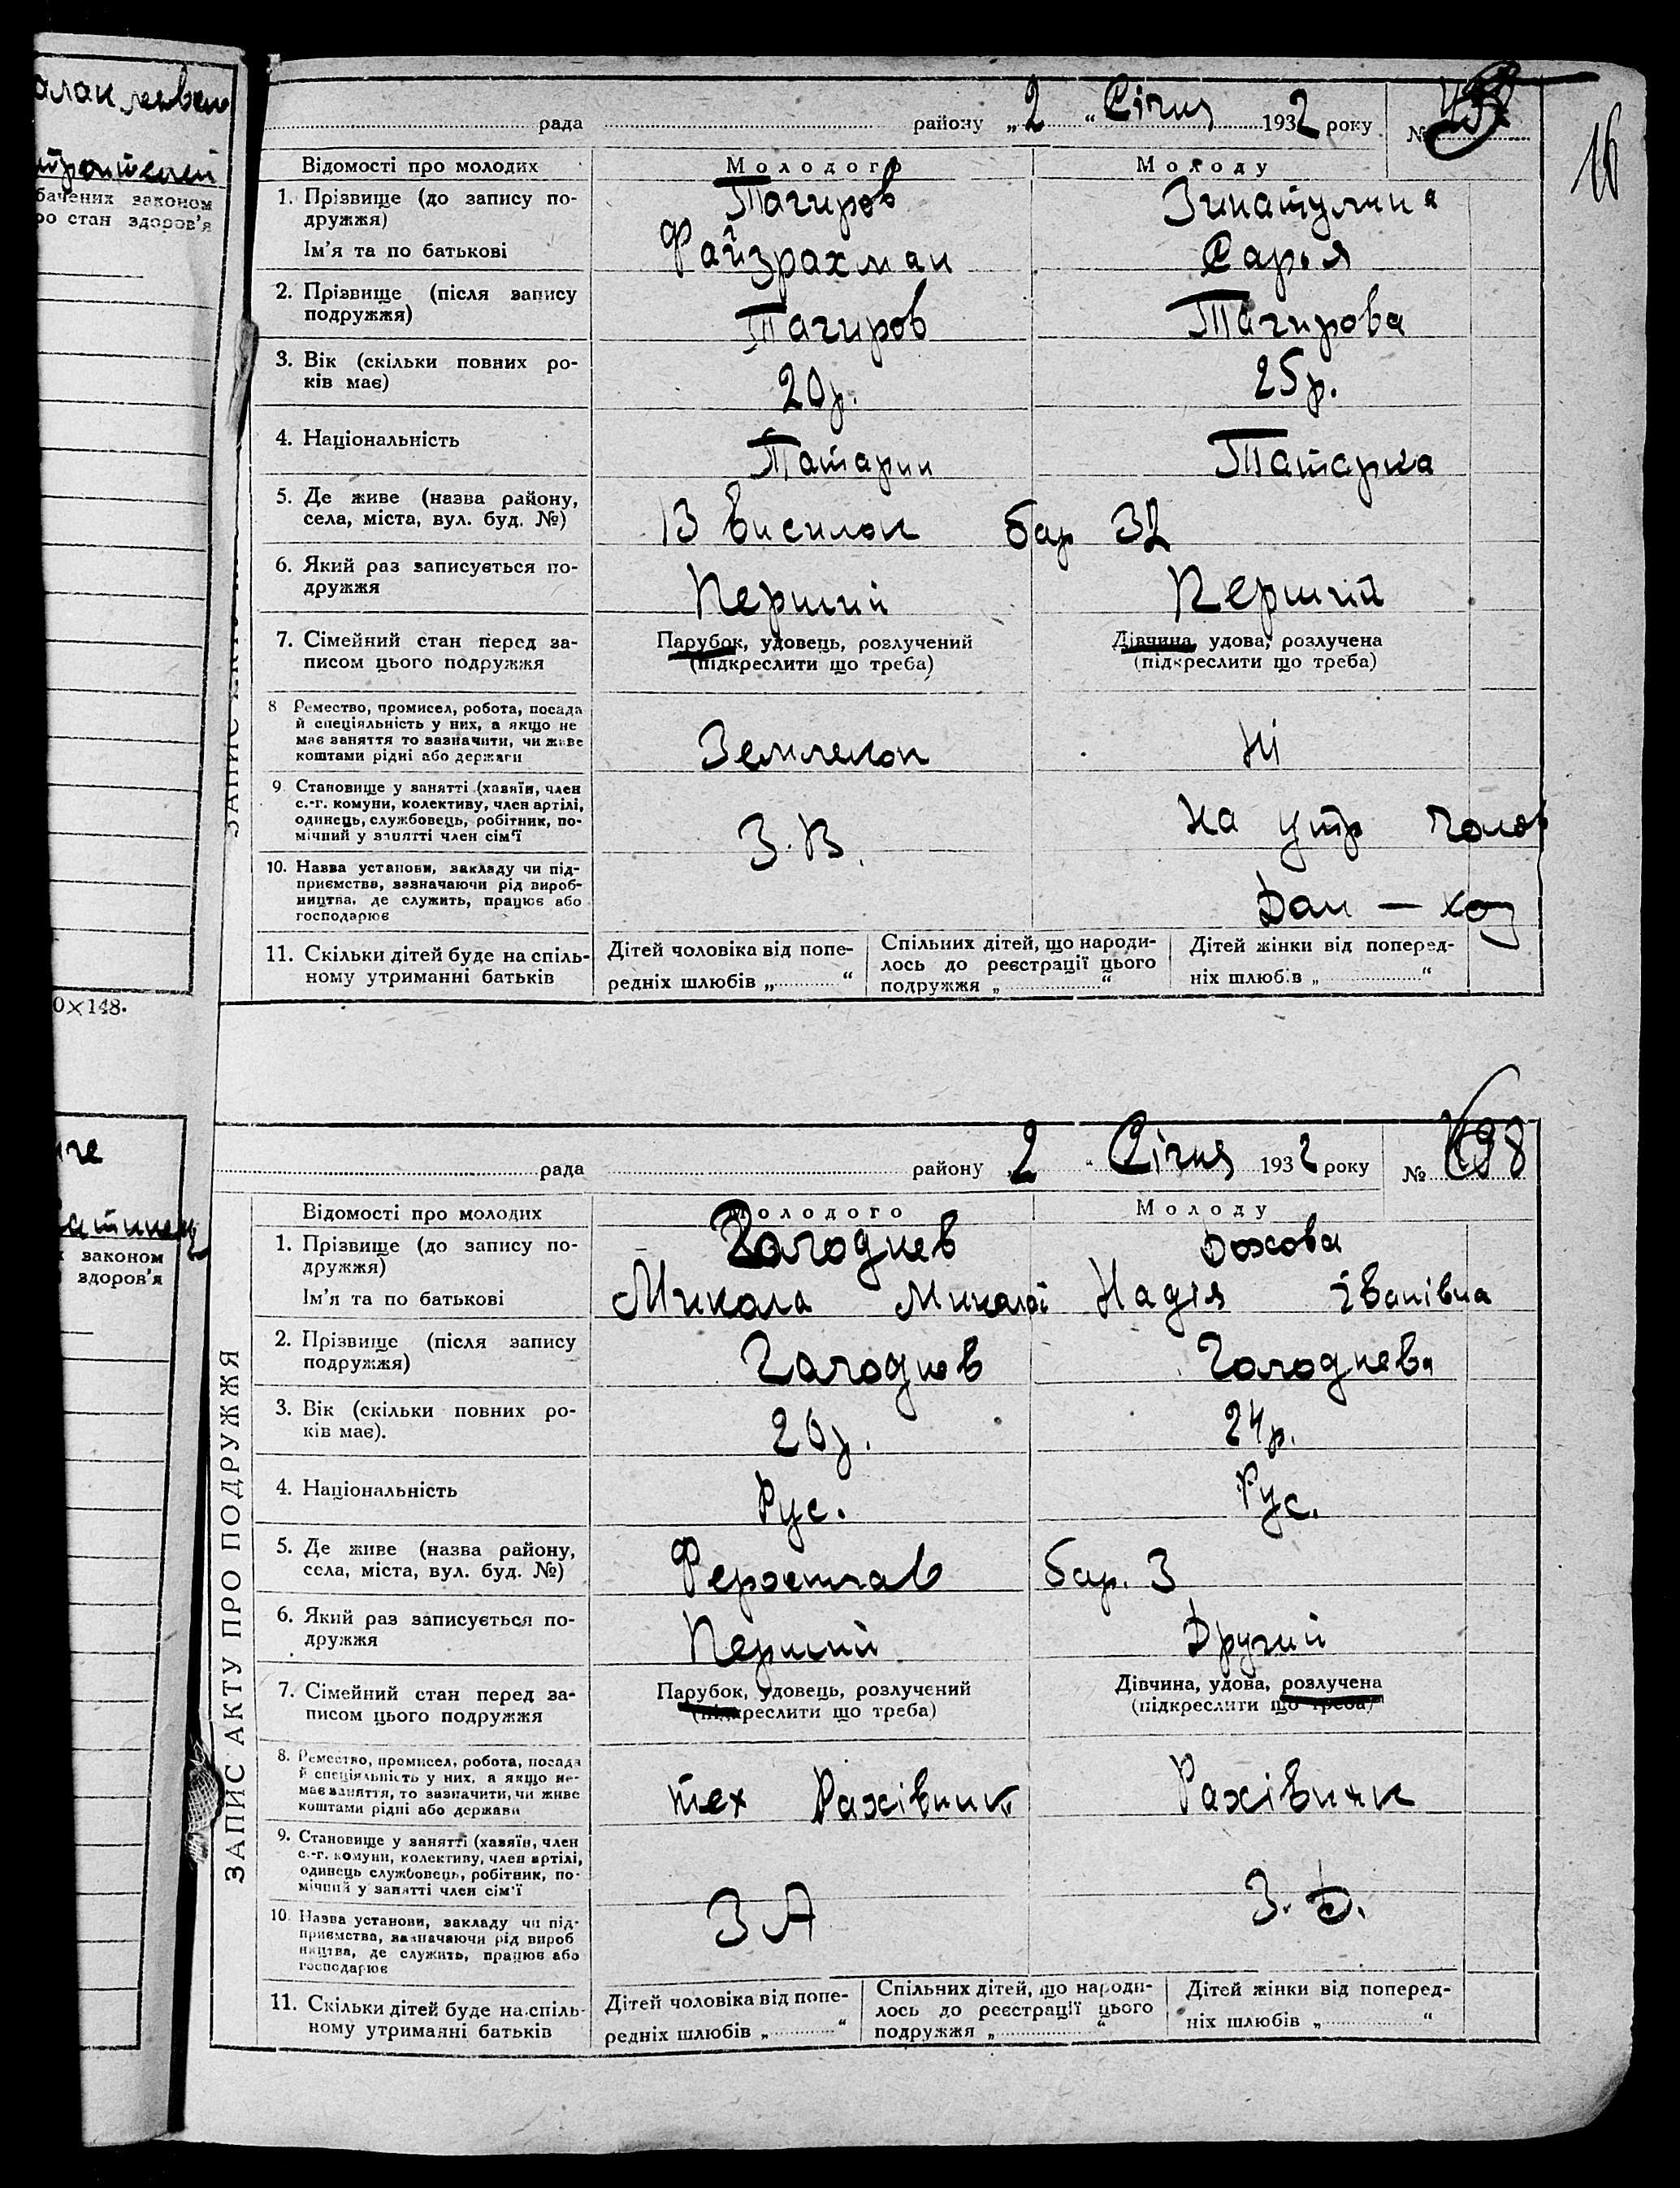 алак
бачених законом
ро стан здоров'я
0×148.
законом
здоров'я
16
рада району „2“ Січня 1932 року №
Відомості про молодих Молодого Молоду
1. Прізвище (до запису по- Тагиров Зинатулина
дружжя)
Ім'я та по батькові Файзрахман Сарья
2. Прізвище (після запису Тагиров Тагирова
подружжя)
3. Вік (скільки повних ро- 20р. 25р.
ків має)
4. Національність Татарин Татарка
5. Де живе (назва району, 13 Висилок бар 32
села, міста, вул. буд. №)
6. Який раз записується по- Перший Перший
дружжя
7. Сімейний стан перед за- Парубок, удовець, розлучений Дівчина, удова, розлучена
писом цього подружжя (підкреслити що треба) (підкреслити що треба)
8 Ремество, промисел, робота, посада
й спеціяльність у них, а якщо не
має заняття то зазначити, чи живе Землекоп Ні
коштами рідні або держави
9. Становище у занятті (хазяїн, член
с.-г. комуни, колективу, член артілі, На утр Чолов
одинець, службовець, робітник, по- З.В.
мічний у занятті член сім'ї
10. Назва установи, закладу чи під-
приємства, зазначаючи рід вироб-
ництва, де служить, працює або Дом — хоз
господарює
11. Скільки дітей буде на спіль- Дітей чоловіка від попе- Спільних дітей, що народи- Дітей жінки від поперед-
ному утриманні батьків редніх шлюбів „ “ лось до реєстрації цього ніх шлюбів „ “
подружжя „ “
рада району 2 “ Січня 1932 року № 98
ЗАПИС АКТУ ПРО ПОДРУЖЖЯ
Відомості про молодих Молодого Молоду
1. Прізвище (до запису по- Голоднев Божова
дружжя)
Ім'я та по батькові Микола Миколої Надія Іванівна
2. Прізвище (після запису Голоднев Голоднева
подружжя)
3. Вік (скільки повних ро- 20р. 24р.
ків має).
4. Національність Рус. Рус.
5. Де живе (назва району, Феросплав бар. 3
села, міста, вул. буд. №)
6. Який раз записується по- Перший Другий
дружжя
7. Сімейний стан перед за- Парубок, удовець, розлучений Дівчина, удова, розлучена
писом цього подружжя (підкреслити що треба) (підкреслити що треба)
8. Ремество, промисел, робота, посада
й спеціяльність у них, а якщо не-
має заняття, то зазначити, чи живе тех Рахівник Рахівник
коштами рідні або держави
9. Становище у занятті (хазяїн, член
с.-г. комуни, колективу, член артілі,
одинець службовець, робітник, по-
мічний у занятті член сім'ї ЗА З.Б.
10. Назва установи, закладу чи під-
приємства, зазначаючи рід вироб
ництва, де служить, працює або
господарює
11. Скільки дітей буде на спіль- Дітей чоловіка від попе- Спільних дітей, що народи- Дітей жінки від поперед-
ному утриманні батьків редніх шлюбів „ “ лось до реєстрації цього ніх шлюбів „ “
подружжя „ “